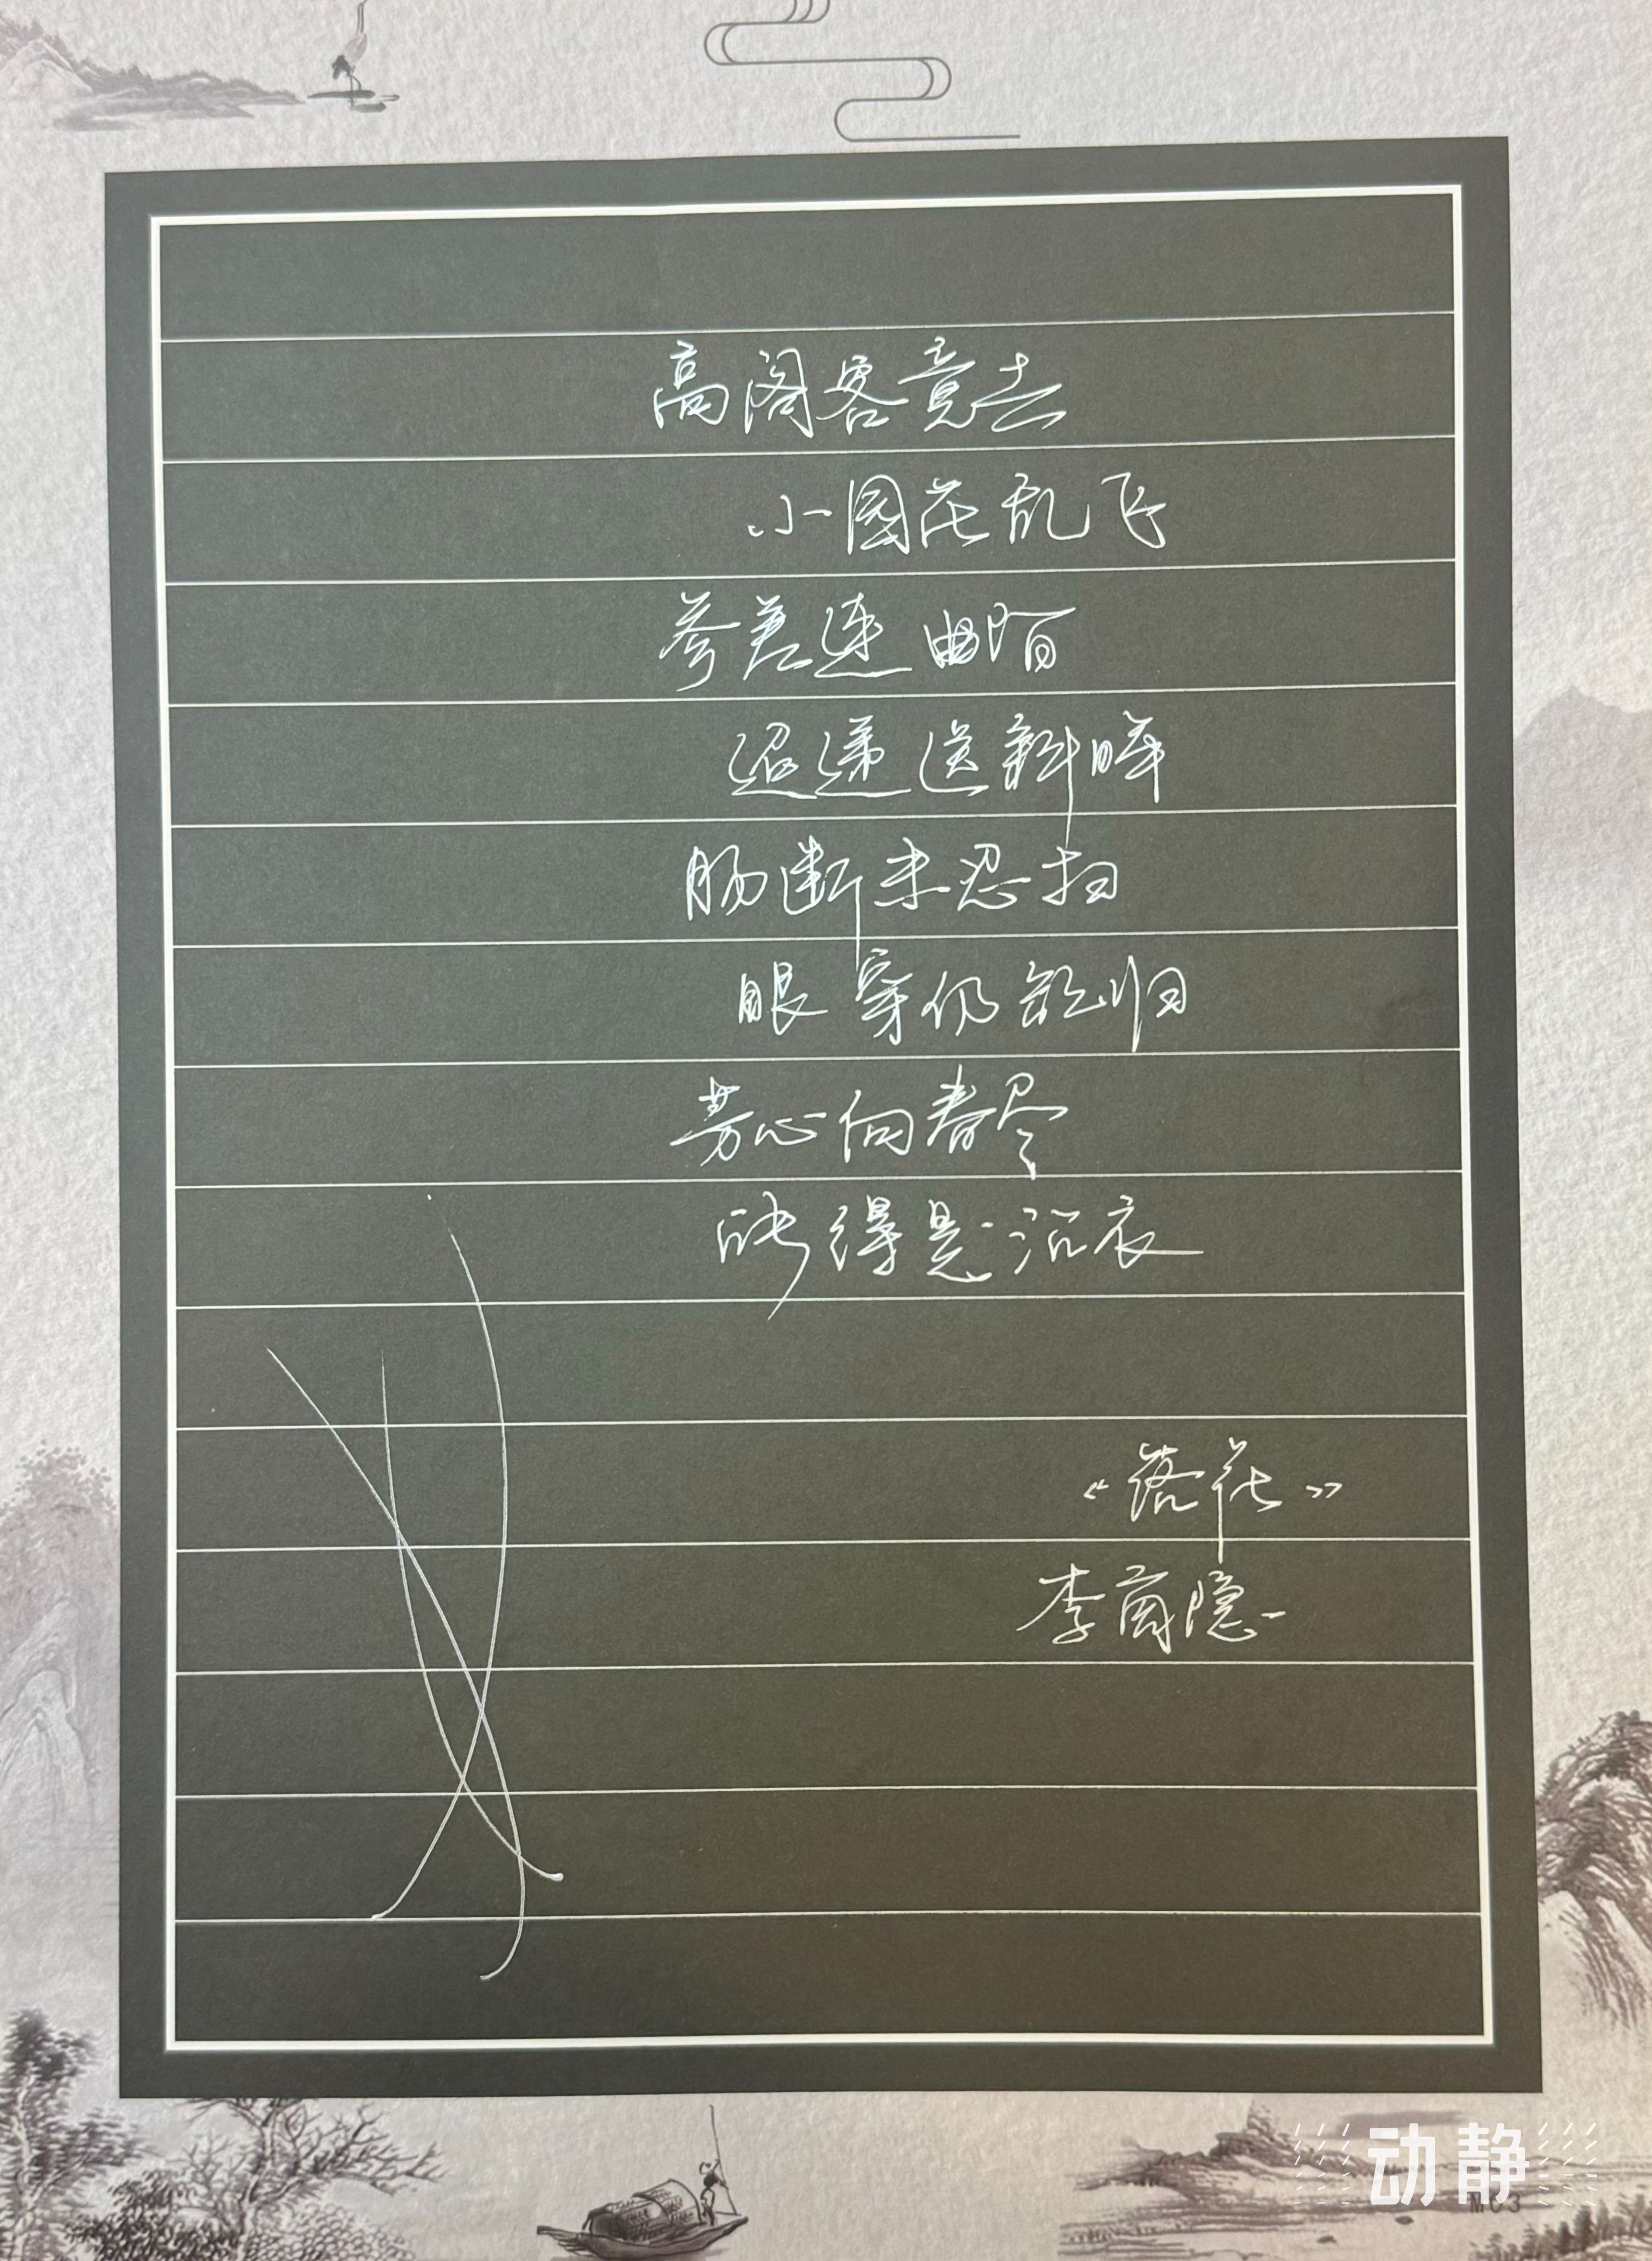 高阁客竟去
小园花乱飞
参差连曲陌
迢递送斜晖
肠断未忍扫
眼穿仍欲归
芳心向春尽
所得是沾衣
《落花》
李商隐
动静
MC3